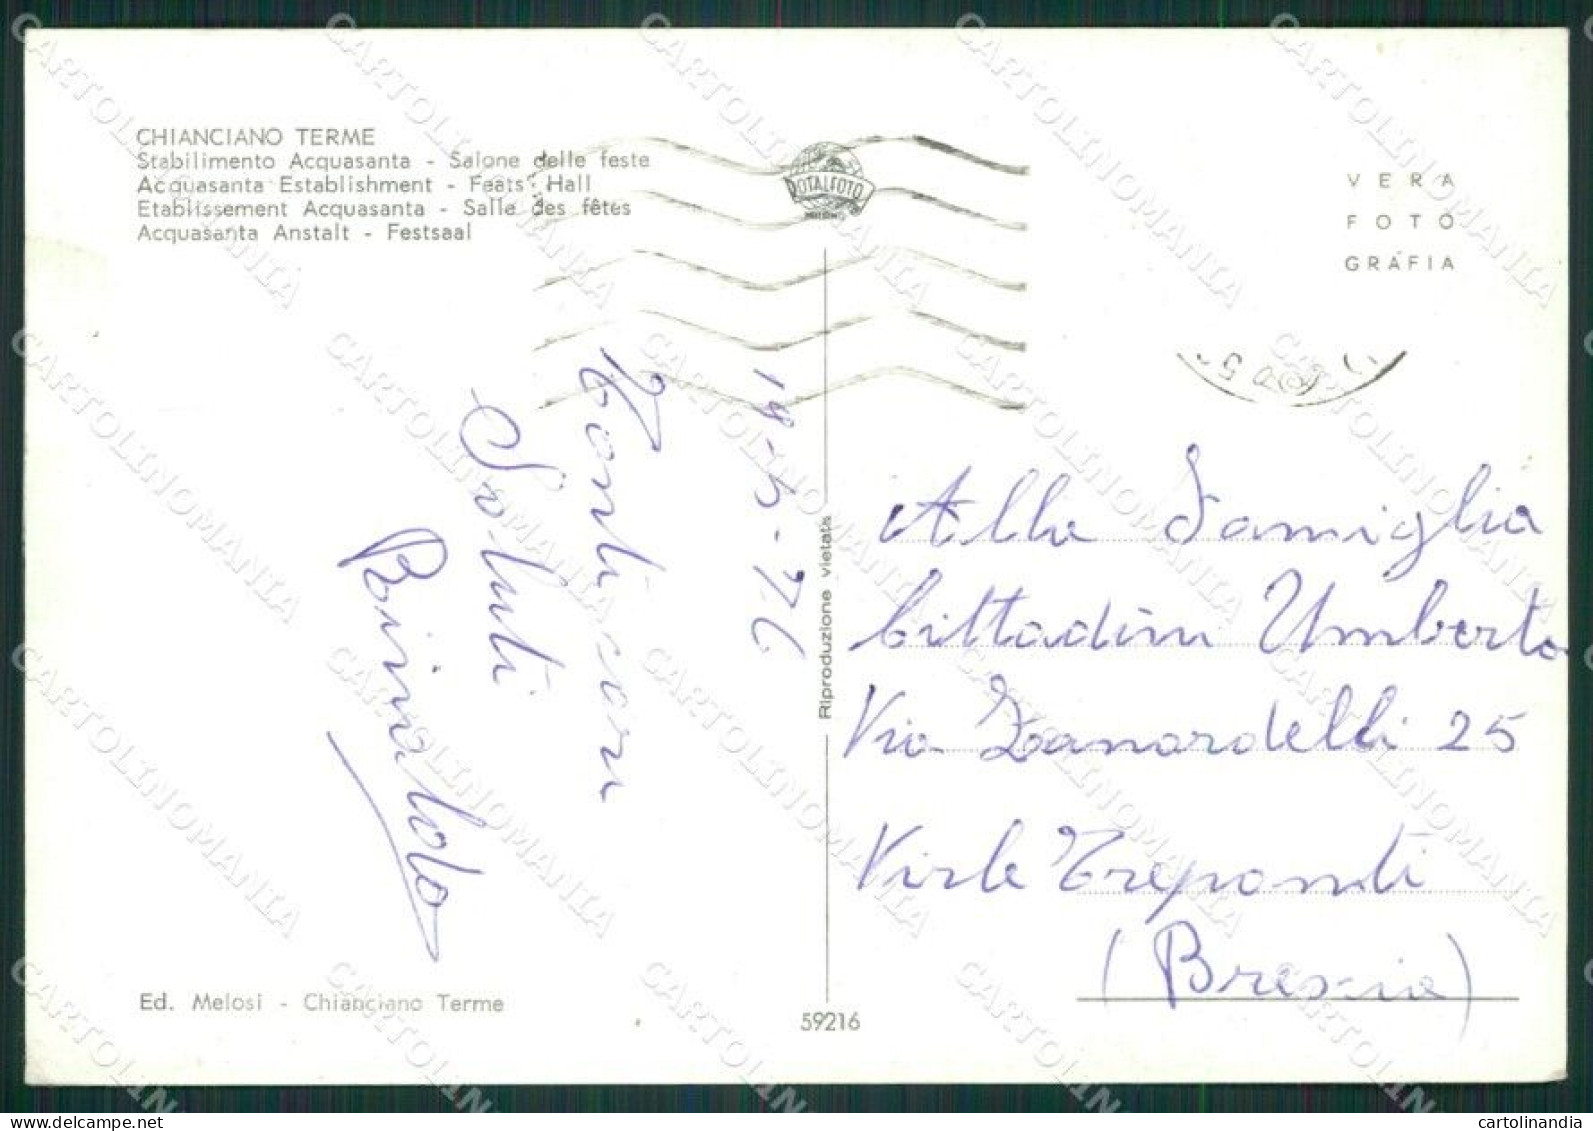 CHIANCIANO TERME
Stabilimento Acquasanta - Salone delle feste
Acquasanta Establishment - Feats' Hall
Etablissement Acquasanta - Salle des fêtes
Acquasanta Anstalt - Festsaal
TOTALFOTO
MILANO
VERA
FOTO
GRAFIA
19-5-76
Tanti cari
Saluti
Rinaldo
Riproduzione vietata
Alla Famiglia
Cittadini Umberto
Via Zanardelli 25
Virle Treponti
(Brescia)
Ed. Melosi - Chianciano Terme
59216
CARTOLINOMANIA
www.delcampe.net
cartolinandia